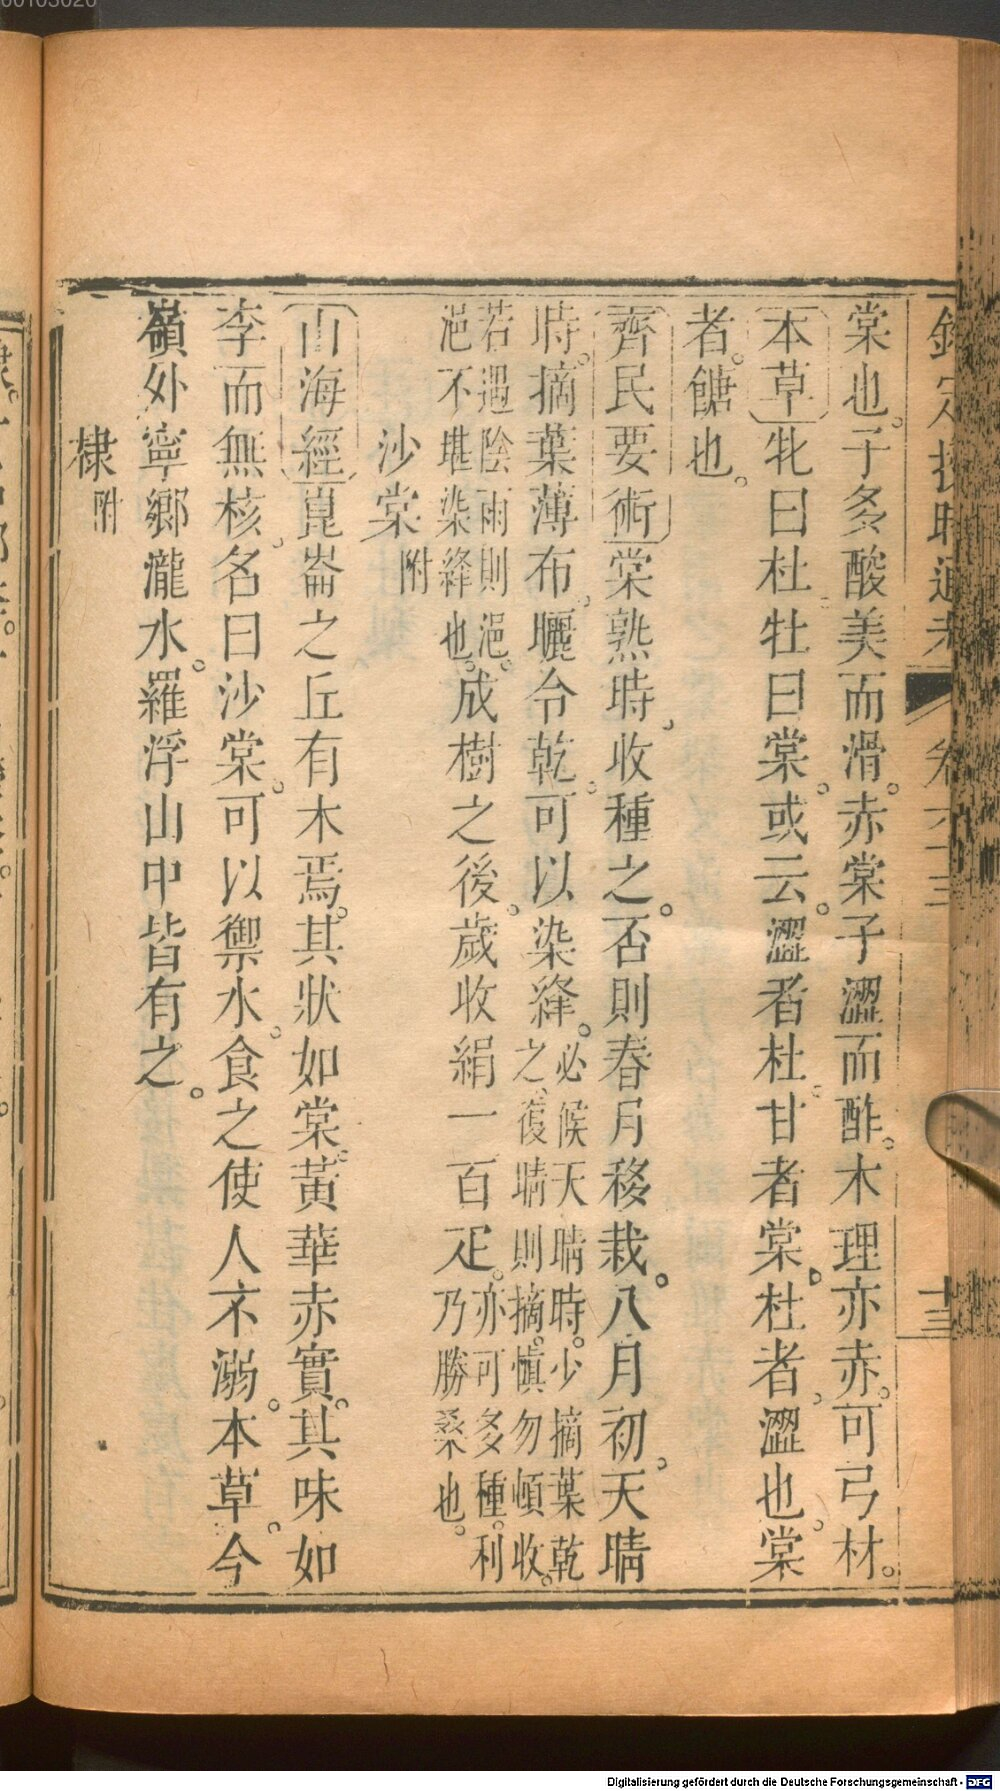 棠也。子多酸美而滑。赤棠子澀而酢。木理亦赤。可弓材。
本草牝曰杜。牡曰棠。或云。澀者杜。甘者棠。杜者。澀也。棠
者。餹也。
齊民要術棠熟時。收種之。否則春月移栽。八月初。天晴
時。摘葉薄布。曬令乾。可以染絳。必候天晴時。少摘葉乾
之、復晴則摘。慎勿頓收。
若遇陰雨則浥。
浥不堪染絳也。成樹之後。歲收絹一百疋。亦可多種。利
乃勝桑也。
沙棠附
山海經崑崙之丘有木焉。其狀如棠。黃華赤實。其味如
李而無核。名曰沙棠。可以禦水。食之使人不溺。本草。今
嶺外寧鄉瀧水。羅浮山中皆有之。
棣附
Digitalisierung gefördert durch die Deutsche Forschungsgemeinschaft - DFG